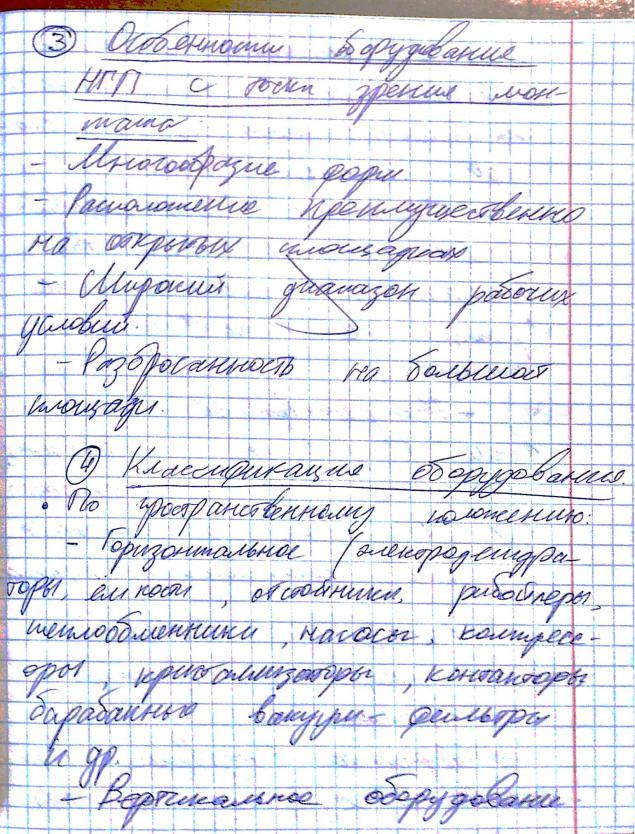 3 Особенности борудования
НГП с точки зрения мон-
тажа.
- Многообразие форм
- Расположение преимущественно
на открытых площадках
- Широкий диапазон рабочих
условий.
- Разбросанность на большой
площади.
4 Классификация оборудования.
• По пространственному положению:
- Горизонтальное (электродегидра-
торы, ёмкости, отстойники, рибойлеры,
теплообменники, насосы, компресс-
оры, кристаллизаторы, контакторы
барабанные вакуум-фильтры
и др.
- Вертикальное оборудование.